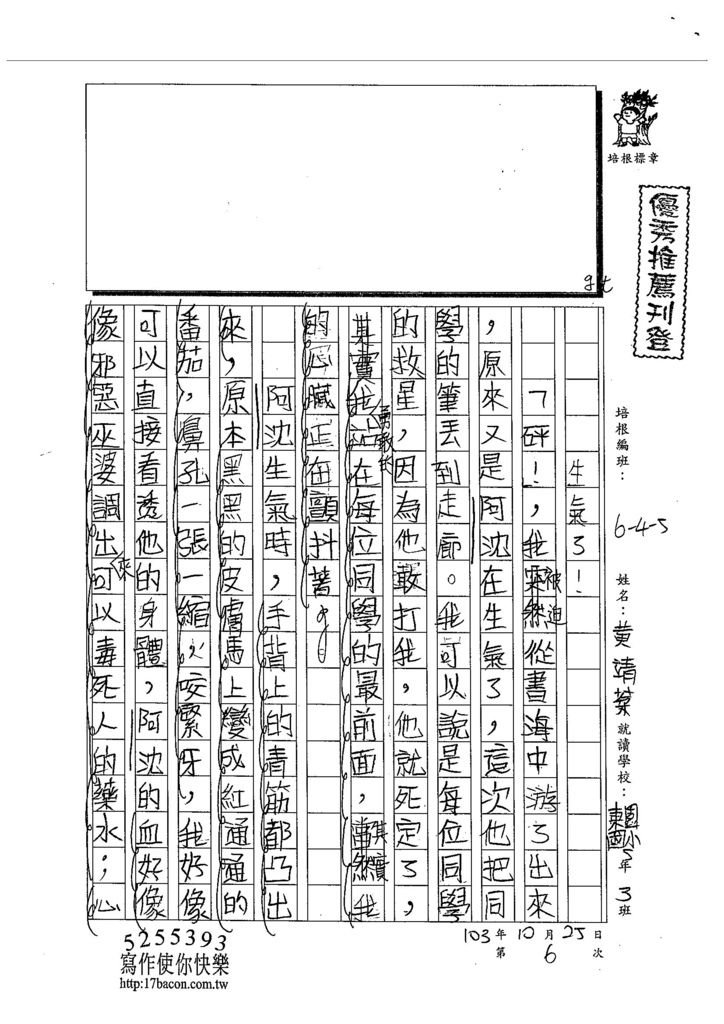 培根標章
優秀推薦刊登
培根編班：6-4-5
姓名：黃靖棻
就讀學校：東園國小5年3班
103年10月25日
第6次
94
生氣了！
「砰！，我突然被迫從書海中游了出來
，原來又是阿沈在生氣了，這次他把同
學的筆丟到走廊。我可以說是每位同學
的救星，因為他敢打我，他就死定了，
其實我勇敢的站在每位同學的最前面，當然其實我
的心臟正在顫抖著。
阿沈生氣時，手背上的青筋都凸出
來，原本黑黑的皮膚馬上變成紅通通的
番茄，鼻孔一張一縮，咬緊牙，我好像
可以直接看透他的身體，阿沈的血好像
像邪惡巫婆調出來可以毒死人的藥水；心
5255393
寫作使你快樂
http:17bacon.com.tw